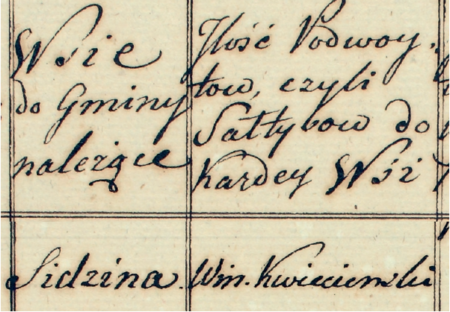 Wsie
do Gminy
należące
Ilość Podwoy
tow, czyli
Sałtysow do
Kazdey Wśi
Sidzina.
Win. Kwiecienski